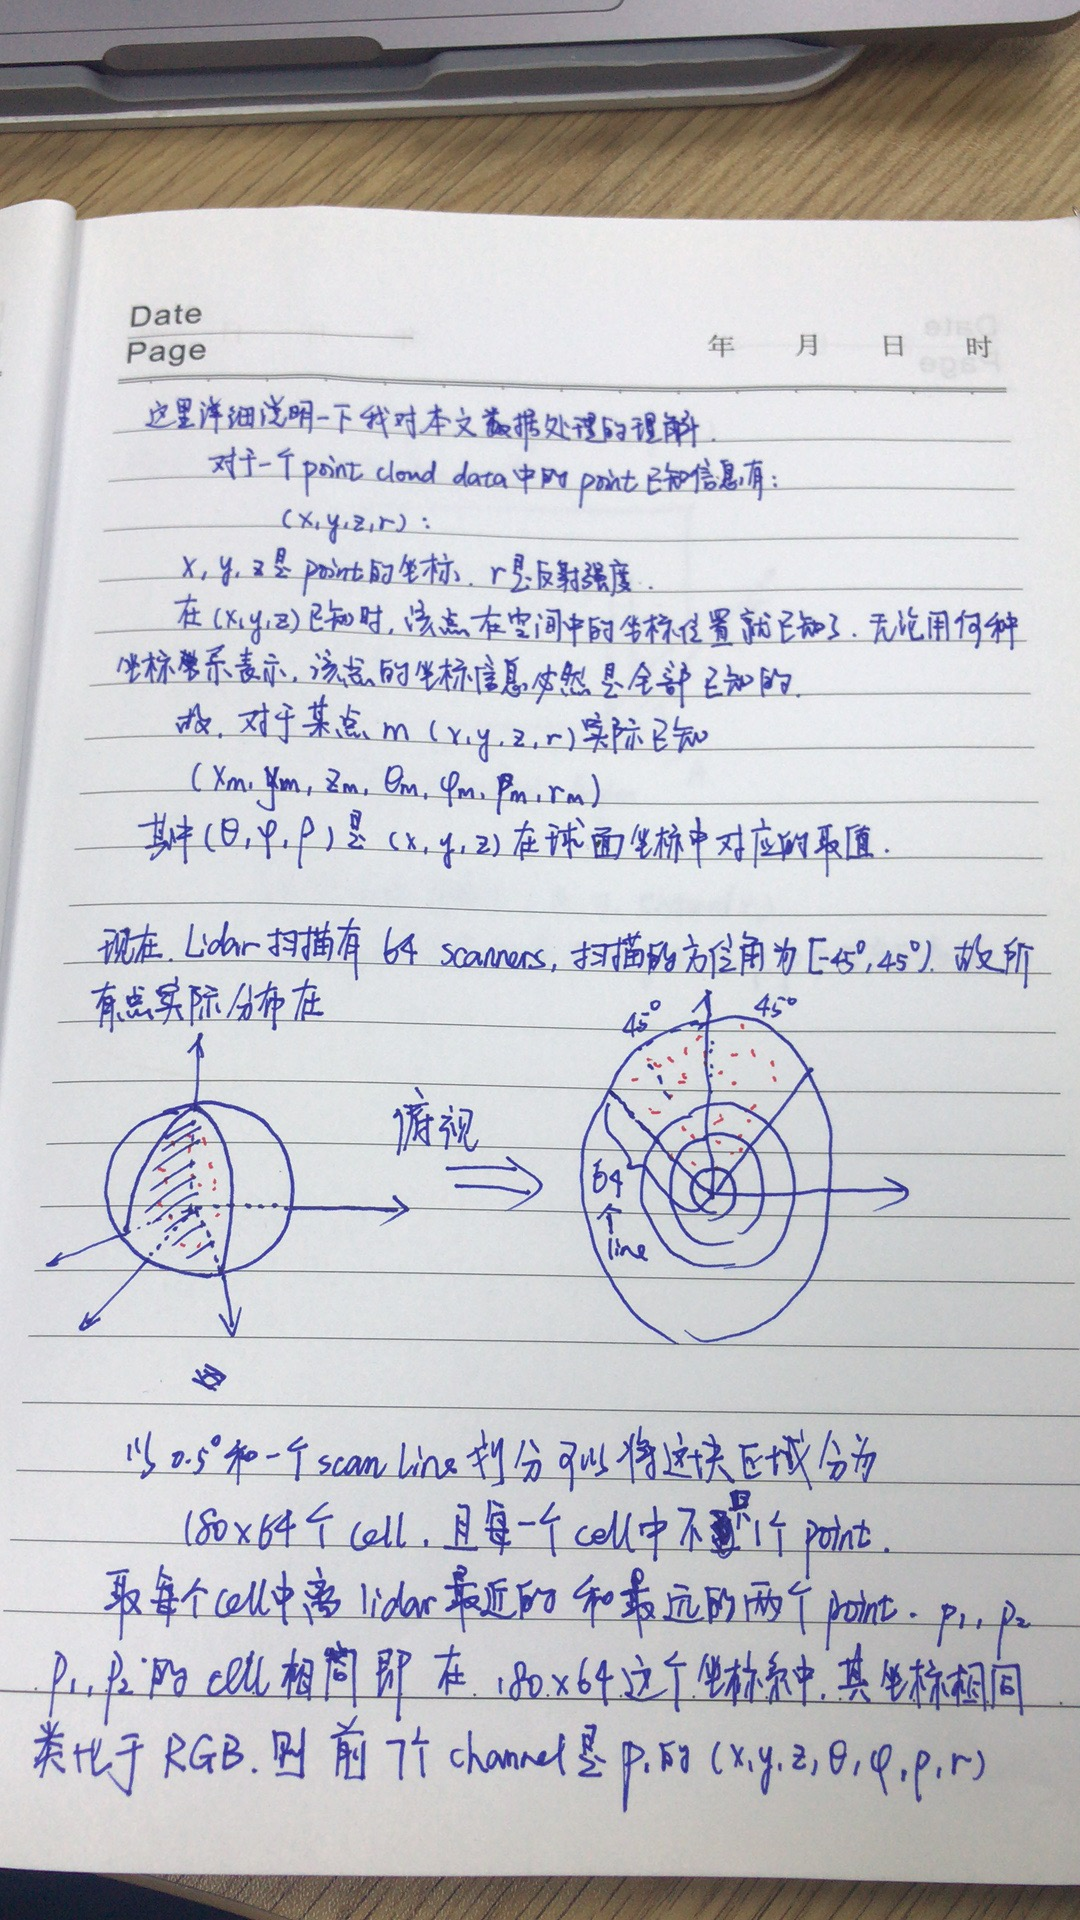 Date
Page
年 月 日 时
这里详细说明一下我对本文数据处理的理解.
对于一个point cloud data中的point已知信息有:
(x,y,z,r):
x, y, z是point的坐标. r是反射强度.
在(x,y,z)已知时,该点在空间中的坐标位置就已知了.无论用何种
坐标系表示,该点的坐标信息必然是全部已知的.
故,对于某点m (x,y,z,r)实际已知
(xm, ym, zm, θm, φm, ρm, rm)
其中(θ, φ, ρ)是(x, y, z)在球面坐标中对应的取值.
现在, Lidar扫描有64 scanners,扫描的方位角为[-45°,45°).故所
有点实际分布在
45° 45°
俯视
64
个
line
以0.5°和一个scan line划分可以将这块区域分为
180×64个cell.且每一个cell中不只1个point.
取每个cell中离lidar最近的和最远的两个point. p1, p2
p1, p2的cell相同即在180×64这个坐标系中,其坐标相同.
类比于RGB.则前7个channel是p1的(x,y,z,θ,φ,ρ,r)